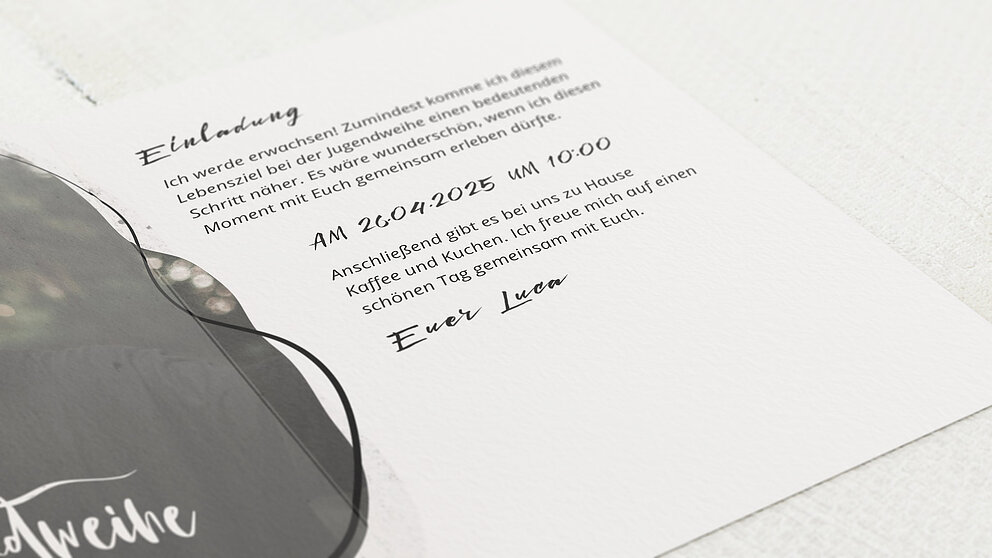 Einladung
Ich werde erwachsen! Zumindest komme ich diesem
Lebensziel bei der Jugendweihe einen bedeutenden
Schritt näher. Es wäre wunderschön, wenn ich diesen
Moment mit Euch gemeinsam erleben dürfte.
AM 26.04.2025 UM 10:00
Anschließend gibt es bei uns zu Hause
Kaffee und Kuchen. Ich freue mich auf einen
schönen Tag gemeinsam mit Euch.
Euer Luca
dweihe